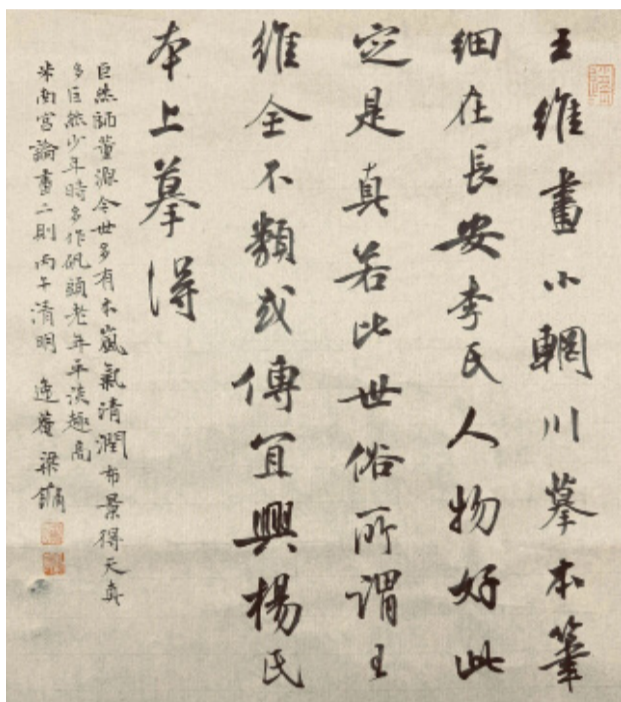 王維畫小輞川摹本筆
細在長安李氏人物好此
定是真若比世俗所謂王
維全不類或傳宜興楊氏
本上摹得
巨然師董源今世多有本嵐氣清潤布景得天真
多巨然少年時多作矾頭老年平淡趣高
米南宮論畫二則丙午清明 逸菴 梁